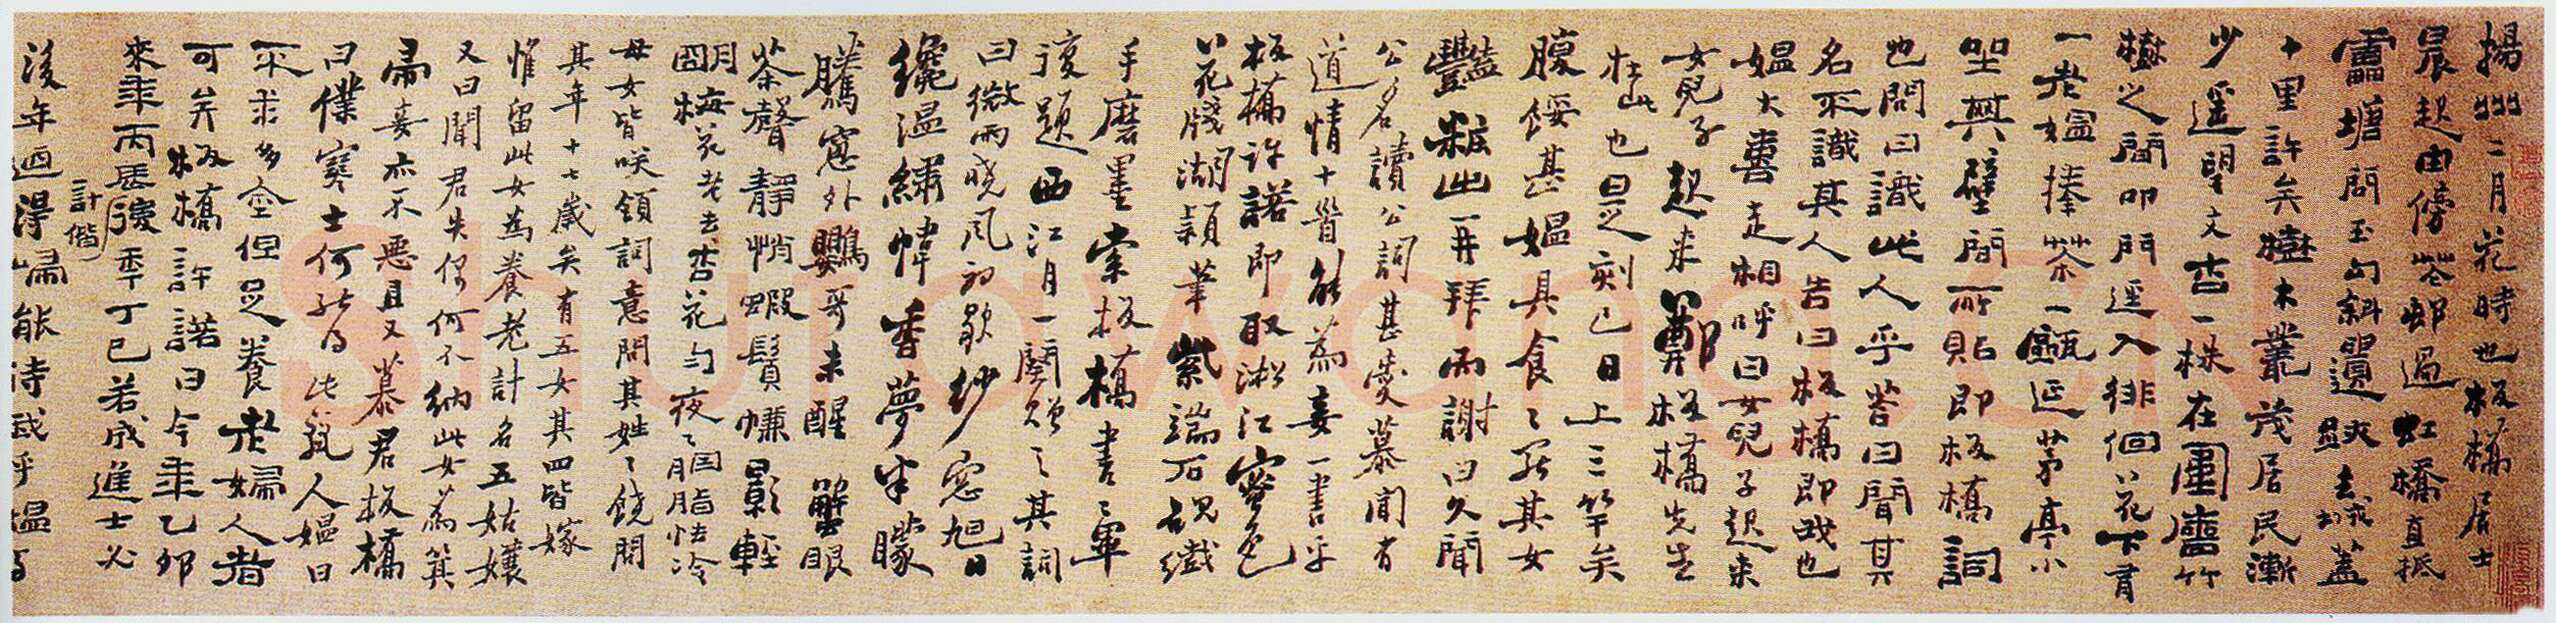 揚州二月花時也板橋居士
晨起由傍花邨過虹橋直抵
雷塘問玉勾斜遺跡去城蓋
十里許矣樹木叢茂居民漸
少遥望文杏一株在圍牆竹
樹之間叩門逕入徘徊花下有
一老媪捧茶一甌延茅亭小
坐其壁間所貼即板橋詞
也問曰識此人乎荅曰聞其
名不識其人告曰板橋即我也
媪大喜走相呼曰女兒子起来
女兒子起来鄭板橋先生
在此也是刻已日上三竿矣
腹餒甚媪具食食罷其女
豔粧出再拜而謝曰久聞
公名讀公詞甚愛慕聞有
道情十首能為妾一書乎
板橋許諾即取淞江蜜色
花牋湖穎筆紫端石硯纖
手磨墨索板橋書書畢
復題西江月一闋贈之其詞
曰微雨曉風初歇紗窓旭日
纔温繡幃香夢半朦
騰窓外鸚哥未醒 蟹眼
茶聲静悄蝦鬚㡘影輕
明梅花老去杏花匀夜夜胭脂怯冷
母女皆咲領詞意問其姓姓饒問
其年十七歲矣有五女其四皆嫁
惟留此女為養老計名五姑孃
又曰聞君失偶何不納此女為箕
帚妾亦不恶且又慕君板橋
曰僕寒士何能得此麗人媪曰
不求多金但足養老婦女人者
可矣板橋許諾曰今年乙卯
來年丙辰計偕後年丁巳若成進士必
後年迺得歸能待我乎媪與
Shufawang.CN